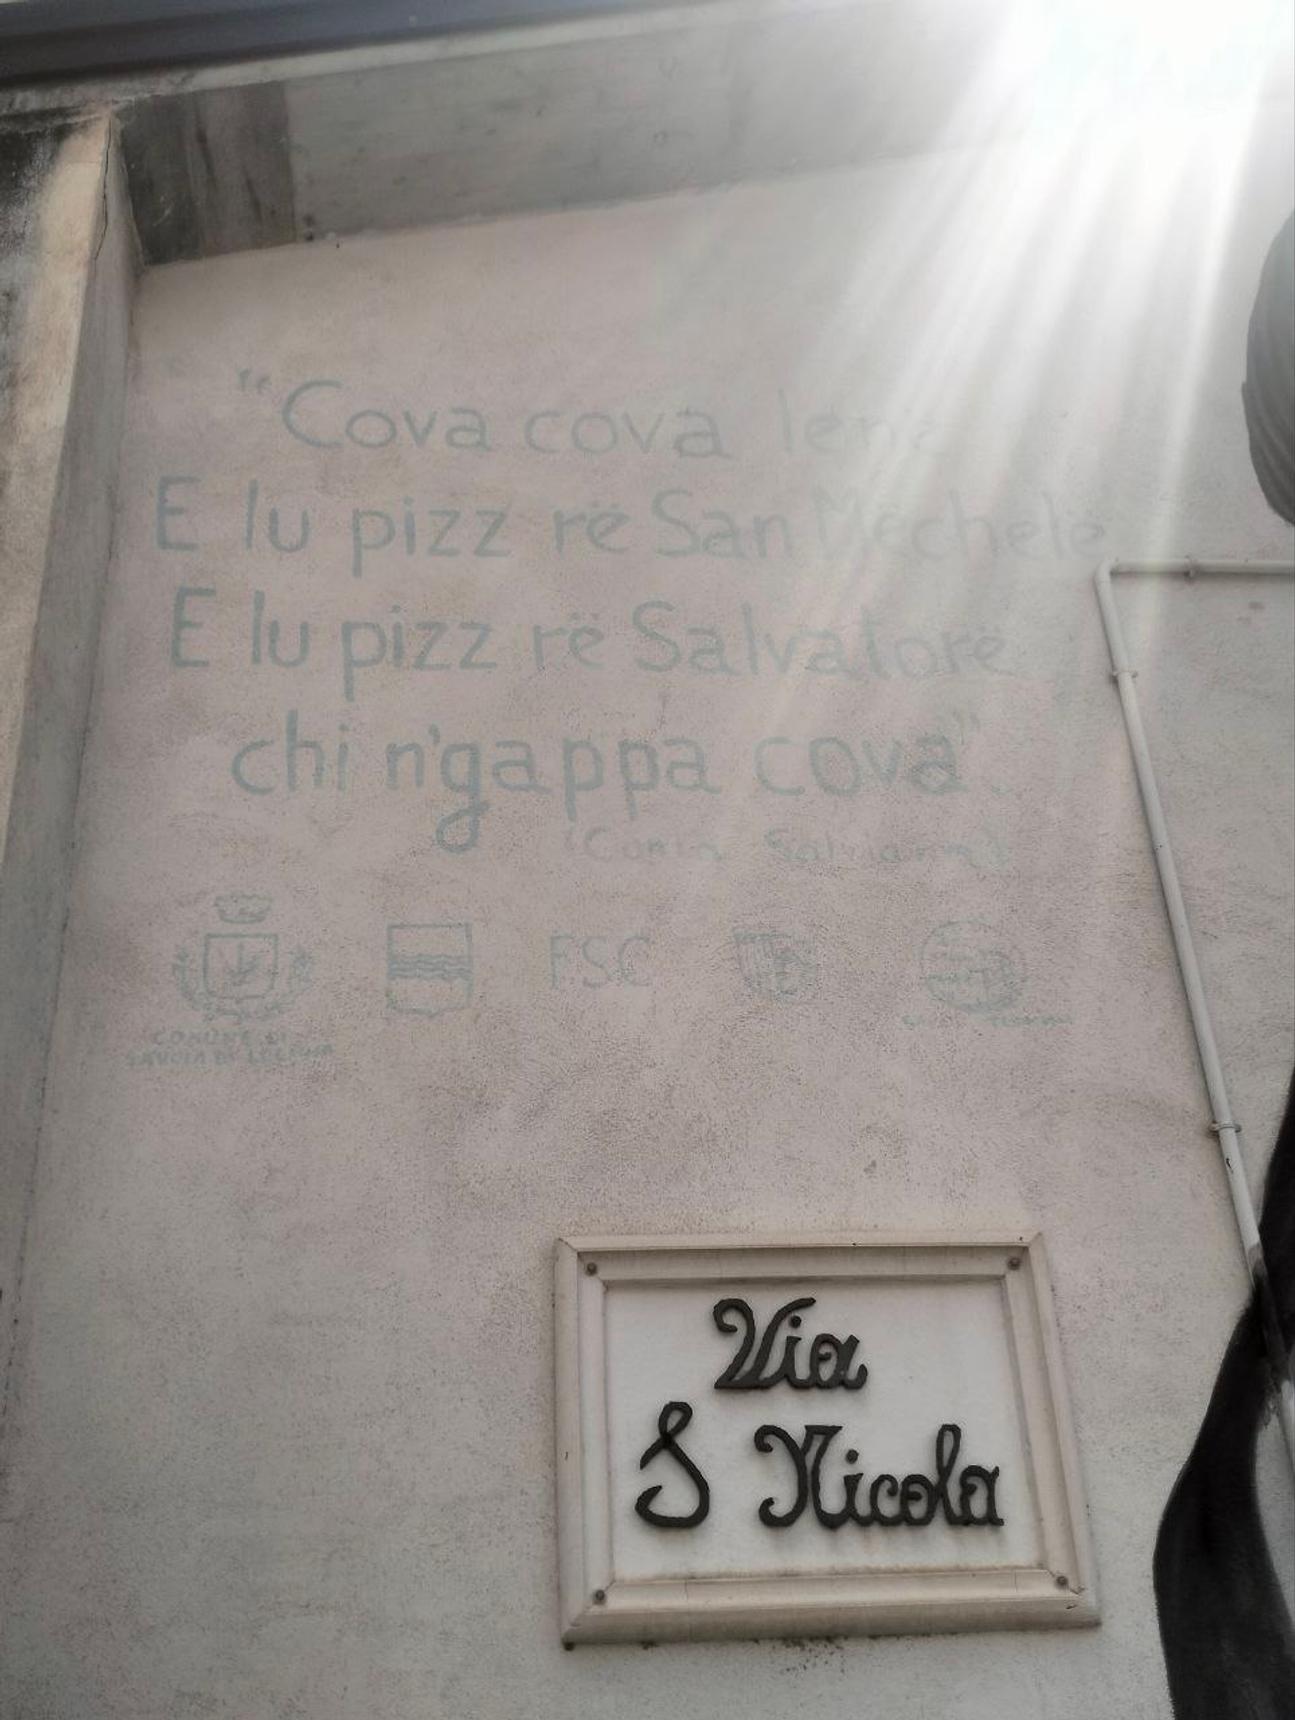 "Cova cova lena
E lu pizz rë San Mëchelë
E lu pizz rë Salvatorë
chi n'gappa cova".
FSC
COMUNE DI
SAVOIA DI LUCANIA
Via
S Nicola